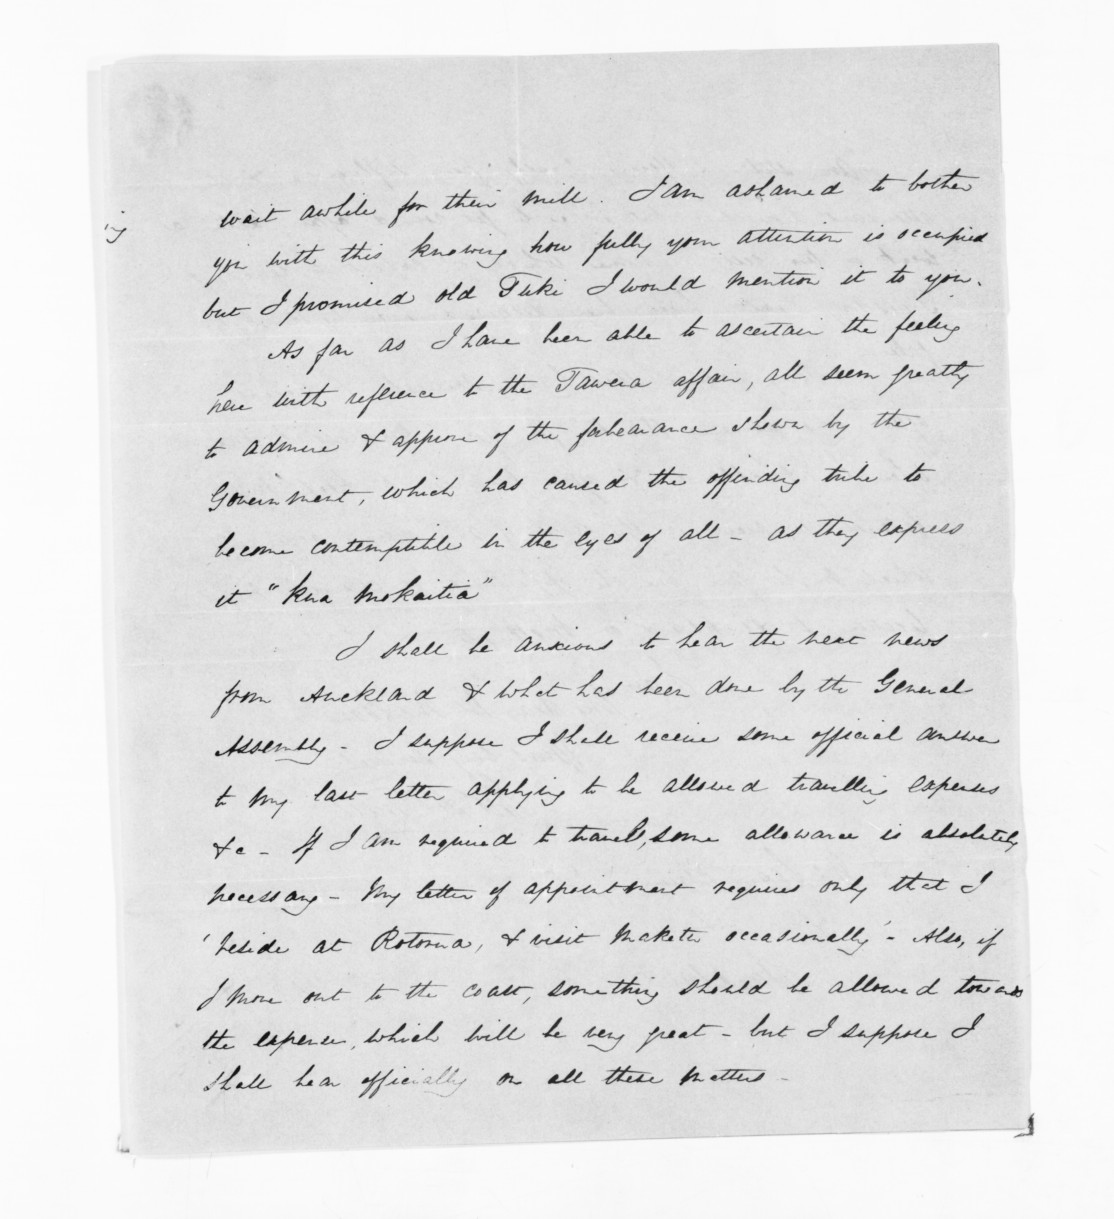 wait awhile for their mill. I am ashamed to bother
you with this knowing how fully your attention is occupied
but I promised old Tuki I would mention it to you.
As far as I have been able to ascertain the feeling
here with reference to the Tawera affair, all seem greatly
to admire & approve of the forbearance shown by the
Government, which has caused the offending tribe to
become contemptible in the eyes of all - as they express
it "kua mokaitia"
I shall be anxious to hear the next news
from Auckland & what has been done by the General
Assembly - I suppose I shall receive some official answer
to my last letter applying to be allowed travelling expenses
&c - If I am required to travel, some allowance is absolutely
necessary - My letter of appointment requires only that I
'reside at Rotorua, & visit Maketu occasionally' - Also, if
I move out to the coast, something should be allowed towards
the expense, which will be very great - but I suppose I
shall hear officially on all these matters -
ing